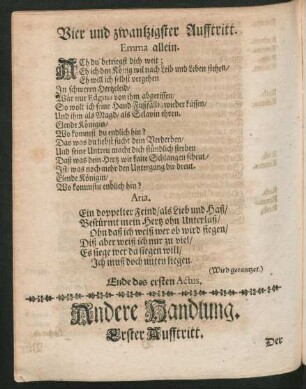 Vier und zwantzigster Aufftritt.
Emma allein.
Ach du betriegst dich weit;
Eh ich den König wil nach Leib und Leben stehen/
Eh will ich selbst vergehen
In schweren Hertzeleid/
Wär nur von ihm abgerissen/
So wolt ich seine Hand Fußfällig wieder küssen/
Und ihm als Magd/ als Sclavin ehren.
Elende Königin/
Wo kommst du endlich hin?
Das was du liebst sucht dein Verderben/
Und seine Untreu macht dich stündlich sterben
Daß was dein Hertz wie keine Schlangen scheut/
Ist was noch mehr den Untergang dir dreut.
Elende Königin/
Wo kommstu endlich hin?
Aria.
Ein doppelter Feind/ als Lieb und Haß/
Bestürmt mein Hertz ohn Unterlaß/
Ob nun daß ich weiß wer ob wird siegen/
Diß aber weiß ich nur zu viel/
Es siege wer da siegen will/
Ich muß doch unten liegen.
(Wird getantzet.)
Ende des ersten Actus.
Andere Handlung.
Erster Aufftritt.
Der